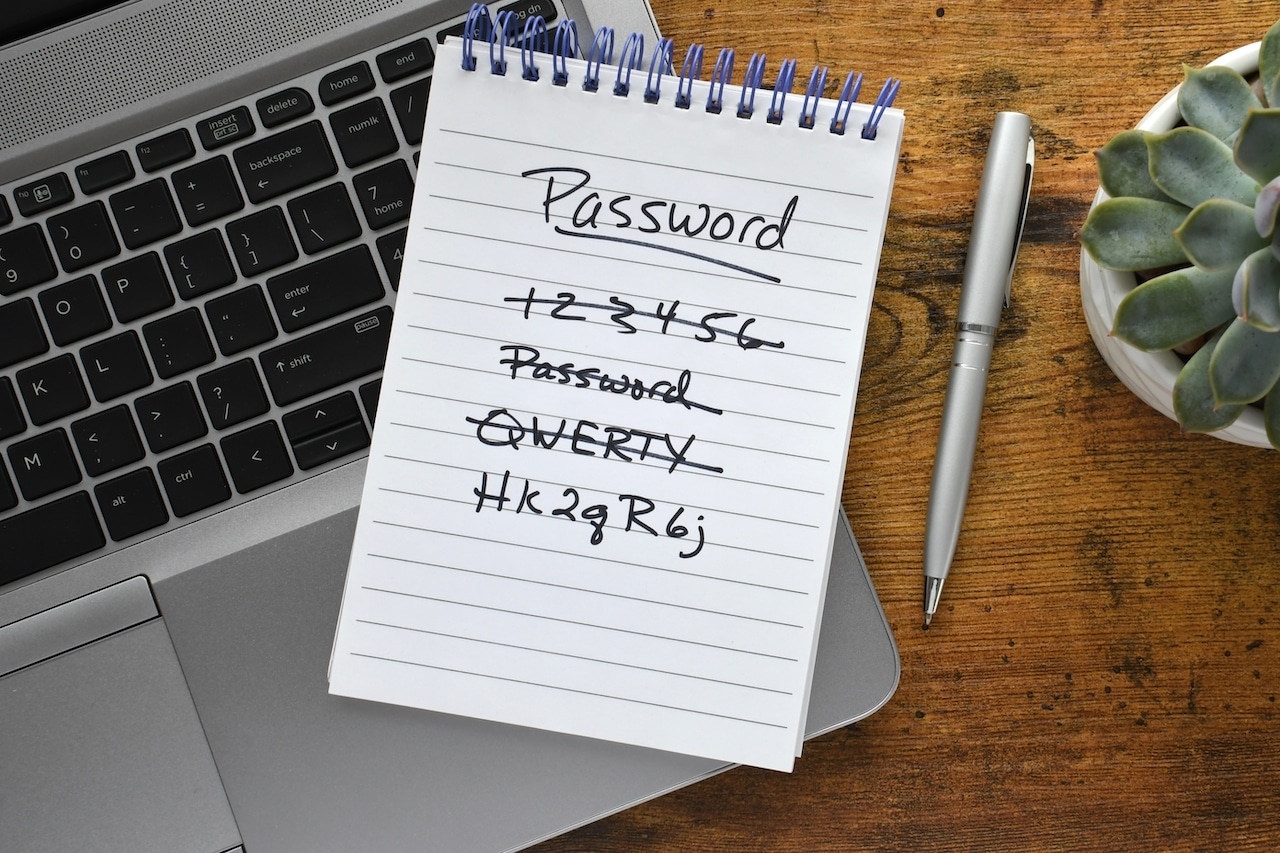 Password
123456
Password
QWERTY
Hk2gR6j
pg dn
end
home
delete
insert
prt sc
f12
f11
f10
numlk
backspace
+
=
_
-
)
0
(
9
7
home
|
\
}
]
{
[
P
O
4
enter
"
'
:
;
L
K
pause
shift
?
/
>
.
<
,
M
ctrl
alt